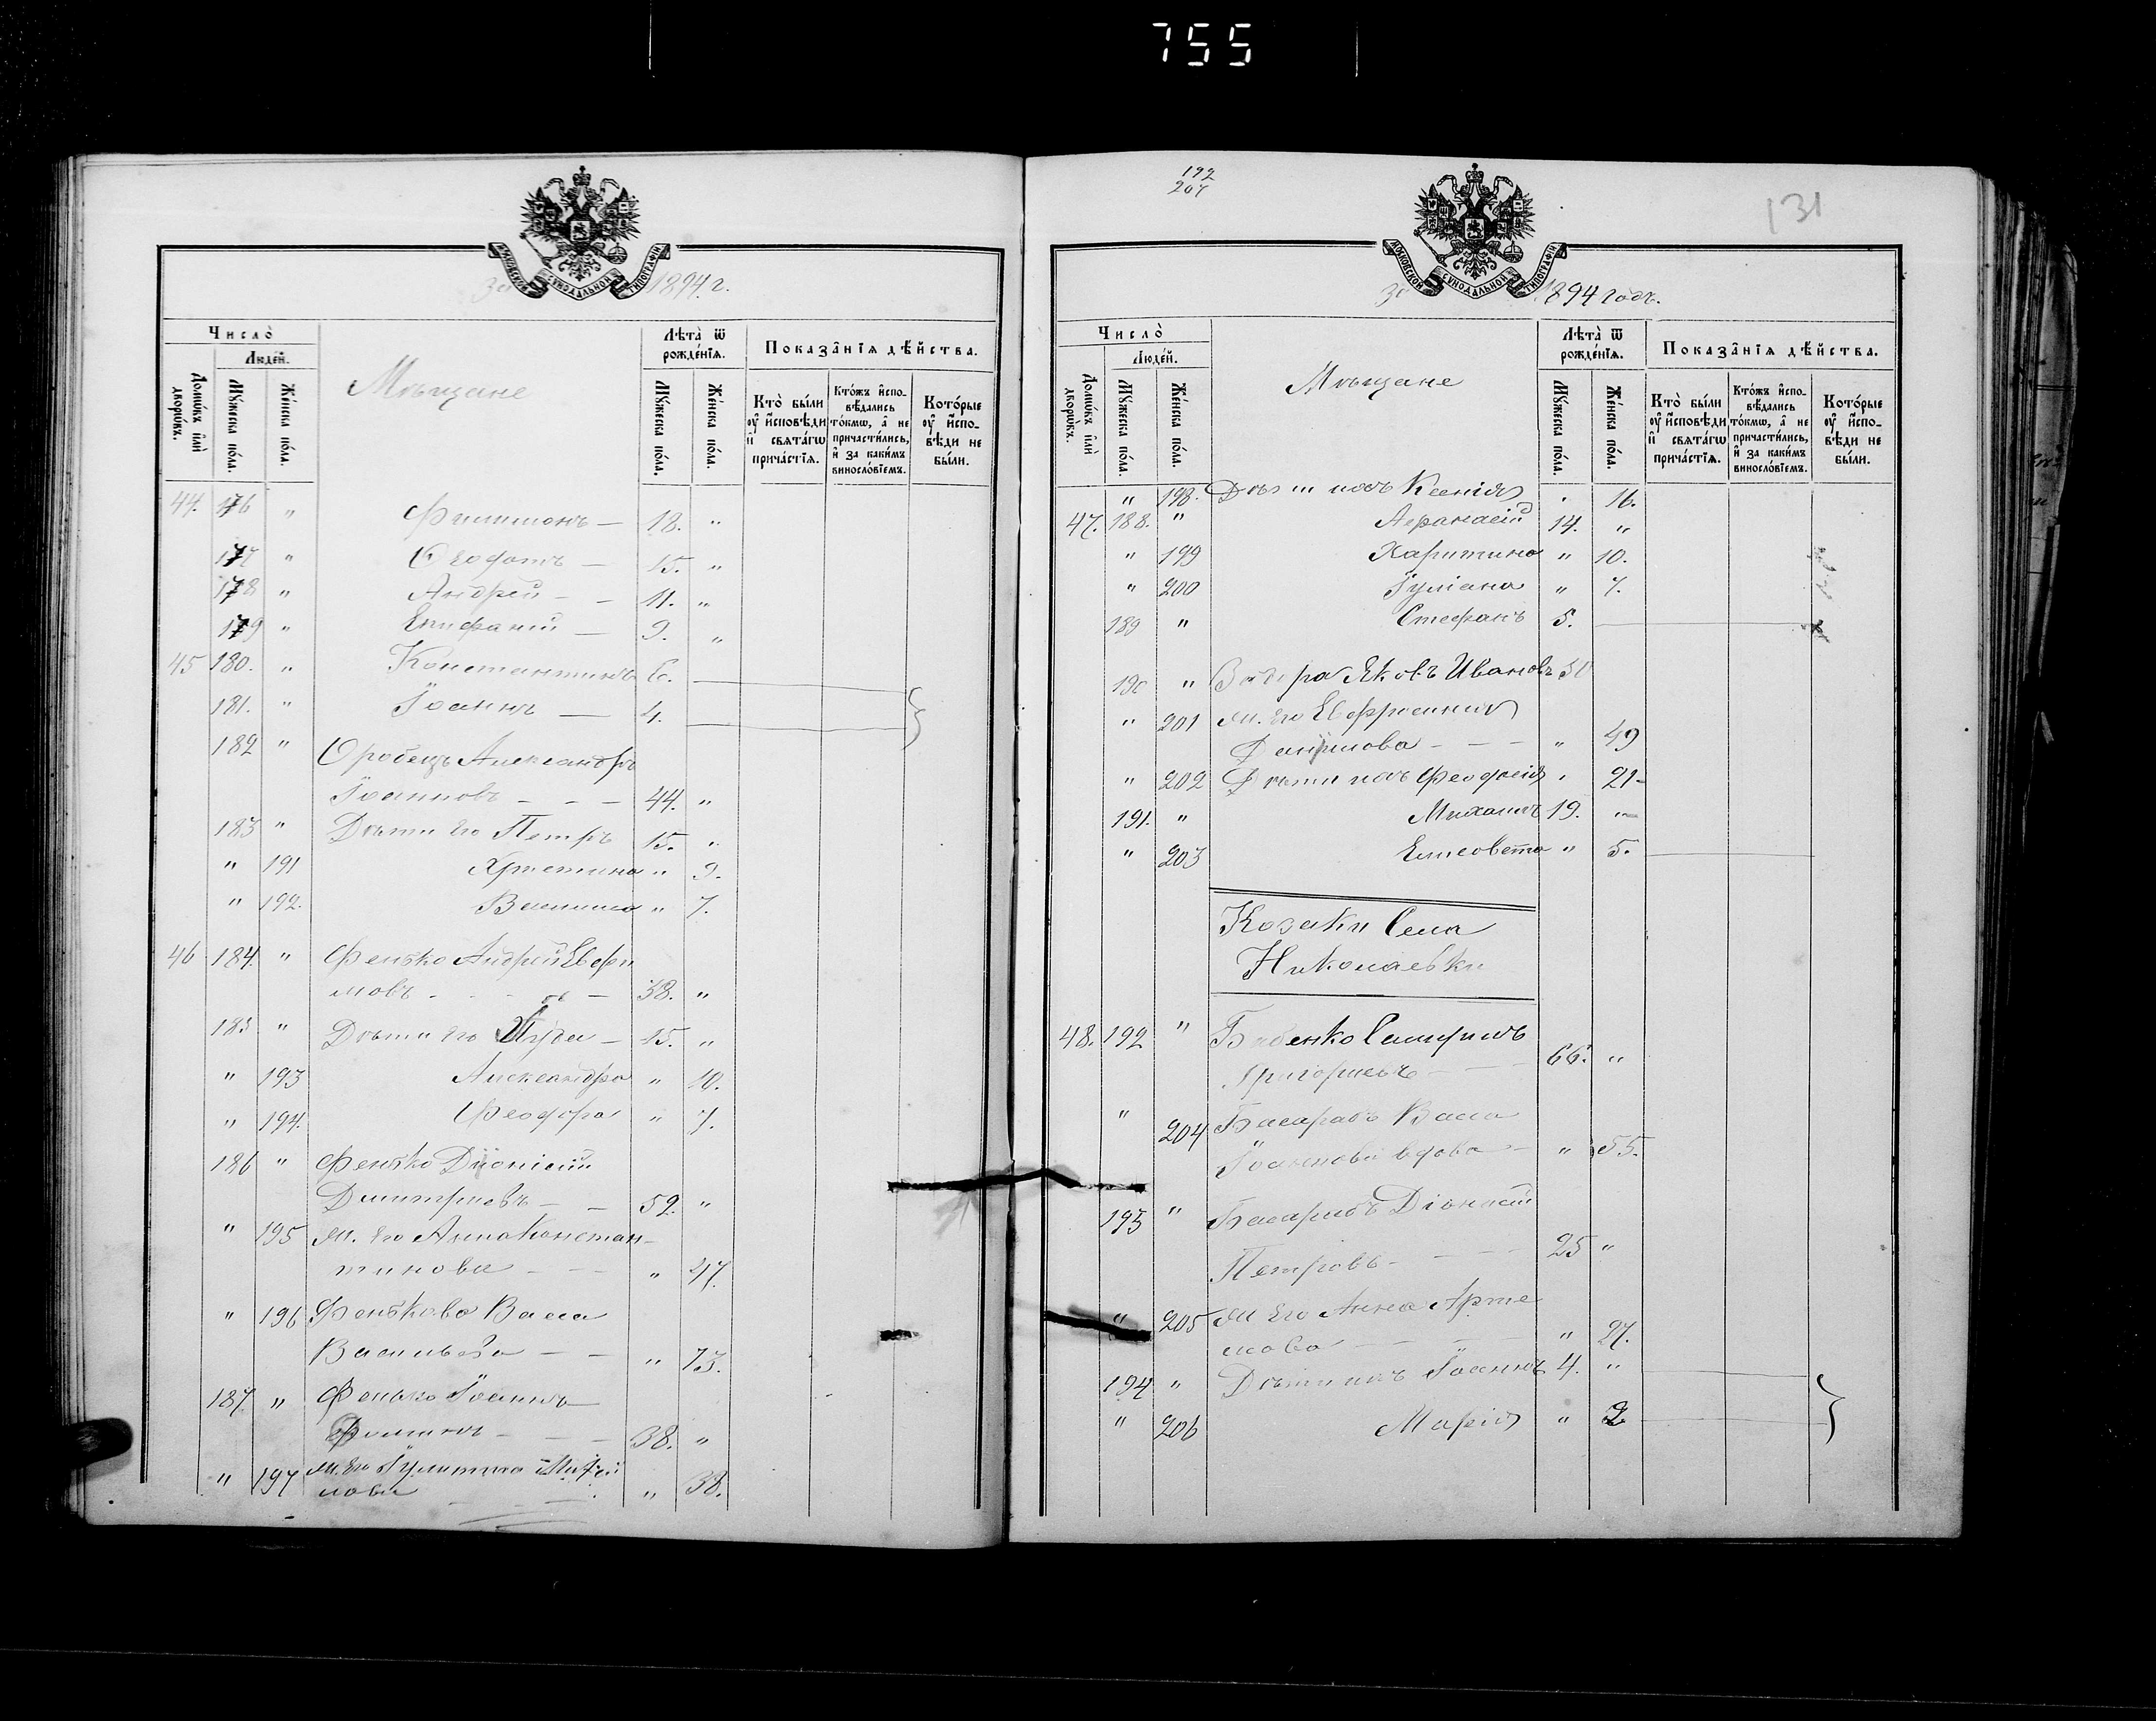 755
МОСКОВСКОЙ СѴНОДАЛЬНОЙ ТИПОГРАФІИ
За 1894 г.
Число̀
Людей.
Домѡвъ и҆лѝ дворѡвъ.
Мꙋжеска по́ла.
Же́нска по́ла.
Мѣщане
Лѣта̀ ѿ рожде́нїѧ.
Мꙋжеска по́ла.
Же́нска по́ла.
Показа̂нїѧ дѣ́йства.
Кто̀ бы́ли ᲂу҆ и҆сповѣди и҆ свѧта́гѡ прича́стїѧ.
Кто́жъ и҆спо-вѣдались то́кмѡ, а҆ не причасти́лись, и҆ за каки́мъ винослові́емъ.
Кото́рые ᲂу҆ и҆спо-вѣди не бы́ли.
44. 176 " Филимонъ — 18. "
177 " Феодотъ — 15. "
178 " Андрей — 11. "
179 " Епифаній — 9. "
45 180. " Константинъ 6.
181. " Іоаннъ — 4.
182 " Оробецъ Александръ
Іоанновъ — 44. "
183 " Дѣти его Петръ 15. "
" 191 Христина " 9.
" 192. Василиса " 7.
46 184. " Фенько Андрей Евфи
мовъ — 38. "
185 " Дѣти его 15. "
" 193 Александра " 10.
" 194. Феодора " 7.
186 " Фенько Діонисій
Димитріевъ — 52. "
" 195 Ж. его Анна Констан-
тинова — " 47.
" 196 Фенькова Васса
Васильева — " 73.
187 " Фенько Іоаннъ
38. "
" 197 Ж. его Іулитта
лова " 38.
192
207
131
МОСКОВСКОЙ СѴНОДАЛЬНОЙ ТИПОГРАФІИ
За 1894 годъ.
Число̀
Людей.
Домѡвъ и҆лѝ дворѡвъ.
Мꙋжеска по́ла.
Же́нска по́ла.
Мѣщане
Лѣта̀ ѿ рожде́нїѧ.
Мꙋжеска по́ла.
Же́нска по́ла.
Показа̂нїѧ дѣ́йства.
Кто̀ бы́ли ᲂу҆ и҆сповѣди и҆ свѧта́гѡ прича́стїѧ.
Кто́жъ и҆спо-вѣдались то́кмѡ, а҆ не причасти́лись, и҆ за каки́мъ винослові́емъ.
Кото́рые ᲂу҆ и҆спо-вѣди не бы́ли.
" 198. Дѣти ихъ Ксенія " 16.
47. 188. " Афанасій 14. "
" 199 Харитина " 10.
" 200 Іуліана " 7.
189 " Стефанъ 5.
190 " Яковъ Ивановъ 51
" 201 Ж. его Евфросинія
Данилова — " 49
" 202 Дѣти ихъ Феодосія " 21
191. " Михаилъ 19. "
" 203 Елисавета " 5.
Козаки Села
Николаевки
48. 192 " Бабенко Самуилъ
Григорьевъ — 66. "
" 204 Басарабъ Васса
Іоаннова вдова — " 55.
193 " Басарабъ Діонисій
Петровъ — 25 "
" 205 Ж его Анна Арте
мова — " 27.
194 " Дѣти ихъ Іоаннъ 4. "
" 206 Марія " 2